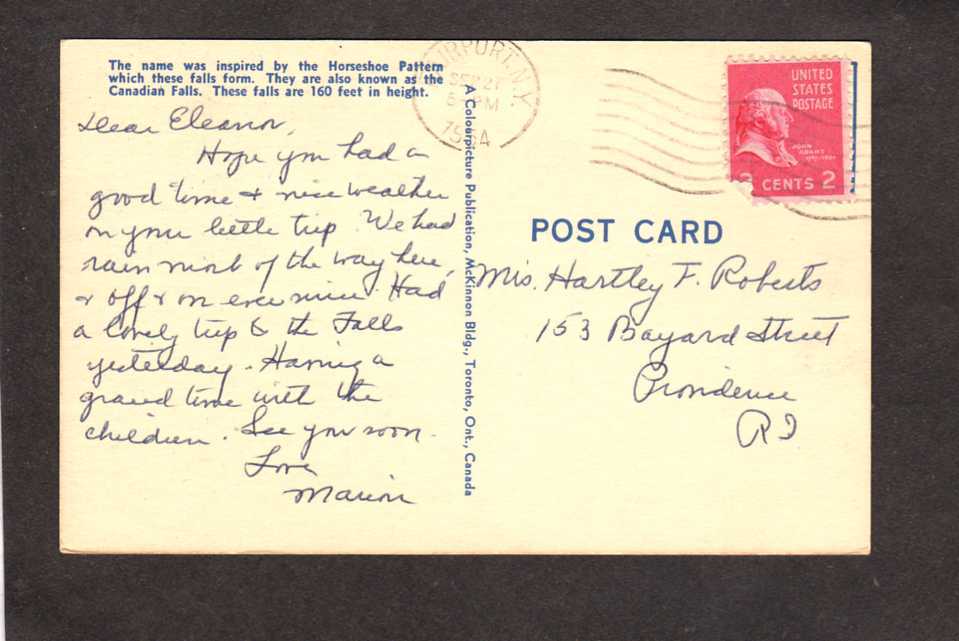 The name was inspired by the Horseshoe Pattern
which these falls form. They are also known as the
Canadian Falls. These falls are 160 feet in height.
Dear Eleanor,
Hope you had a
good time & nice weather
on your little trip. We had
rain most of the way here,
& off & on ever since. Had
a lovely trip to the Falls
yesterday. Having a
grand time with the
children. See you soon.
Love
Marion
A Colourpicture Publication, McKinnon Bldg., Toronto, Ont., Canada
PORT, N.Y.
SEP 27
PM
UNITED
STATES
POSTAGE
JOHN
ADAMS
CENTS 2
POST CARD
Mrs. Hartley F. Roberts
153 Bayard Street
Providence
RI